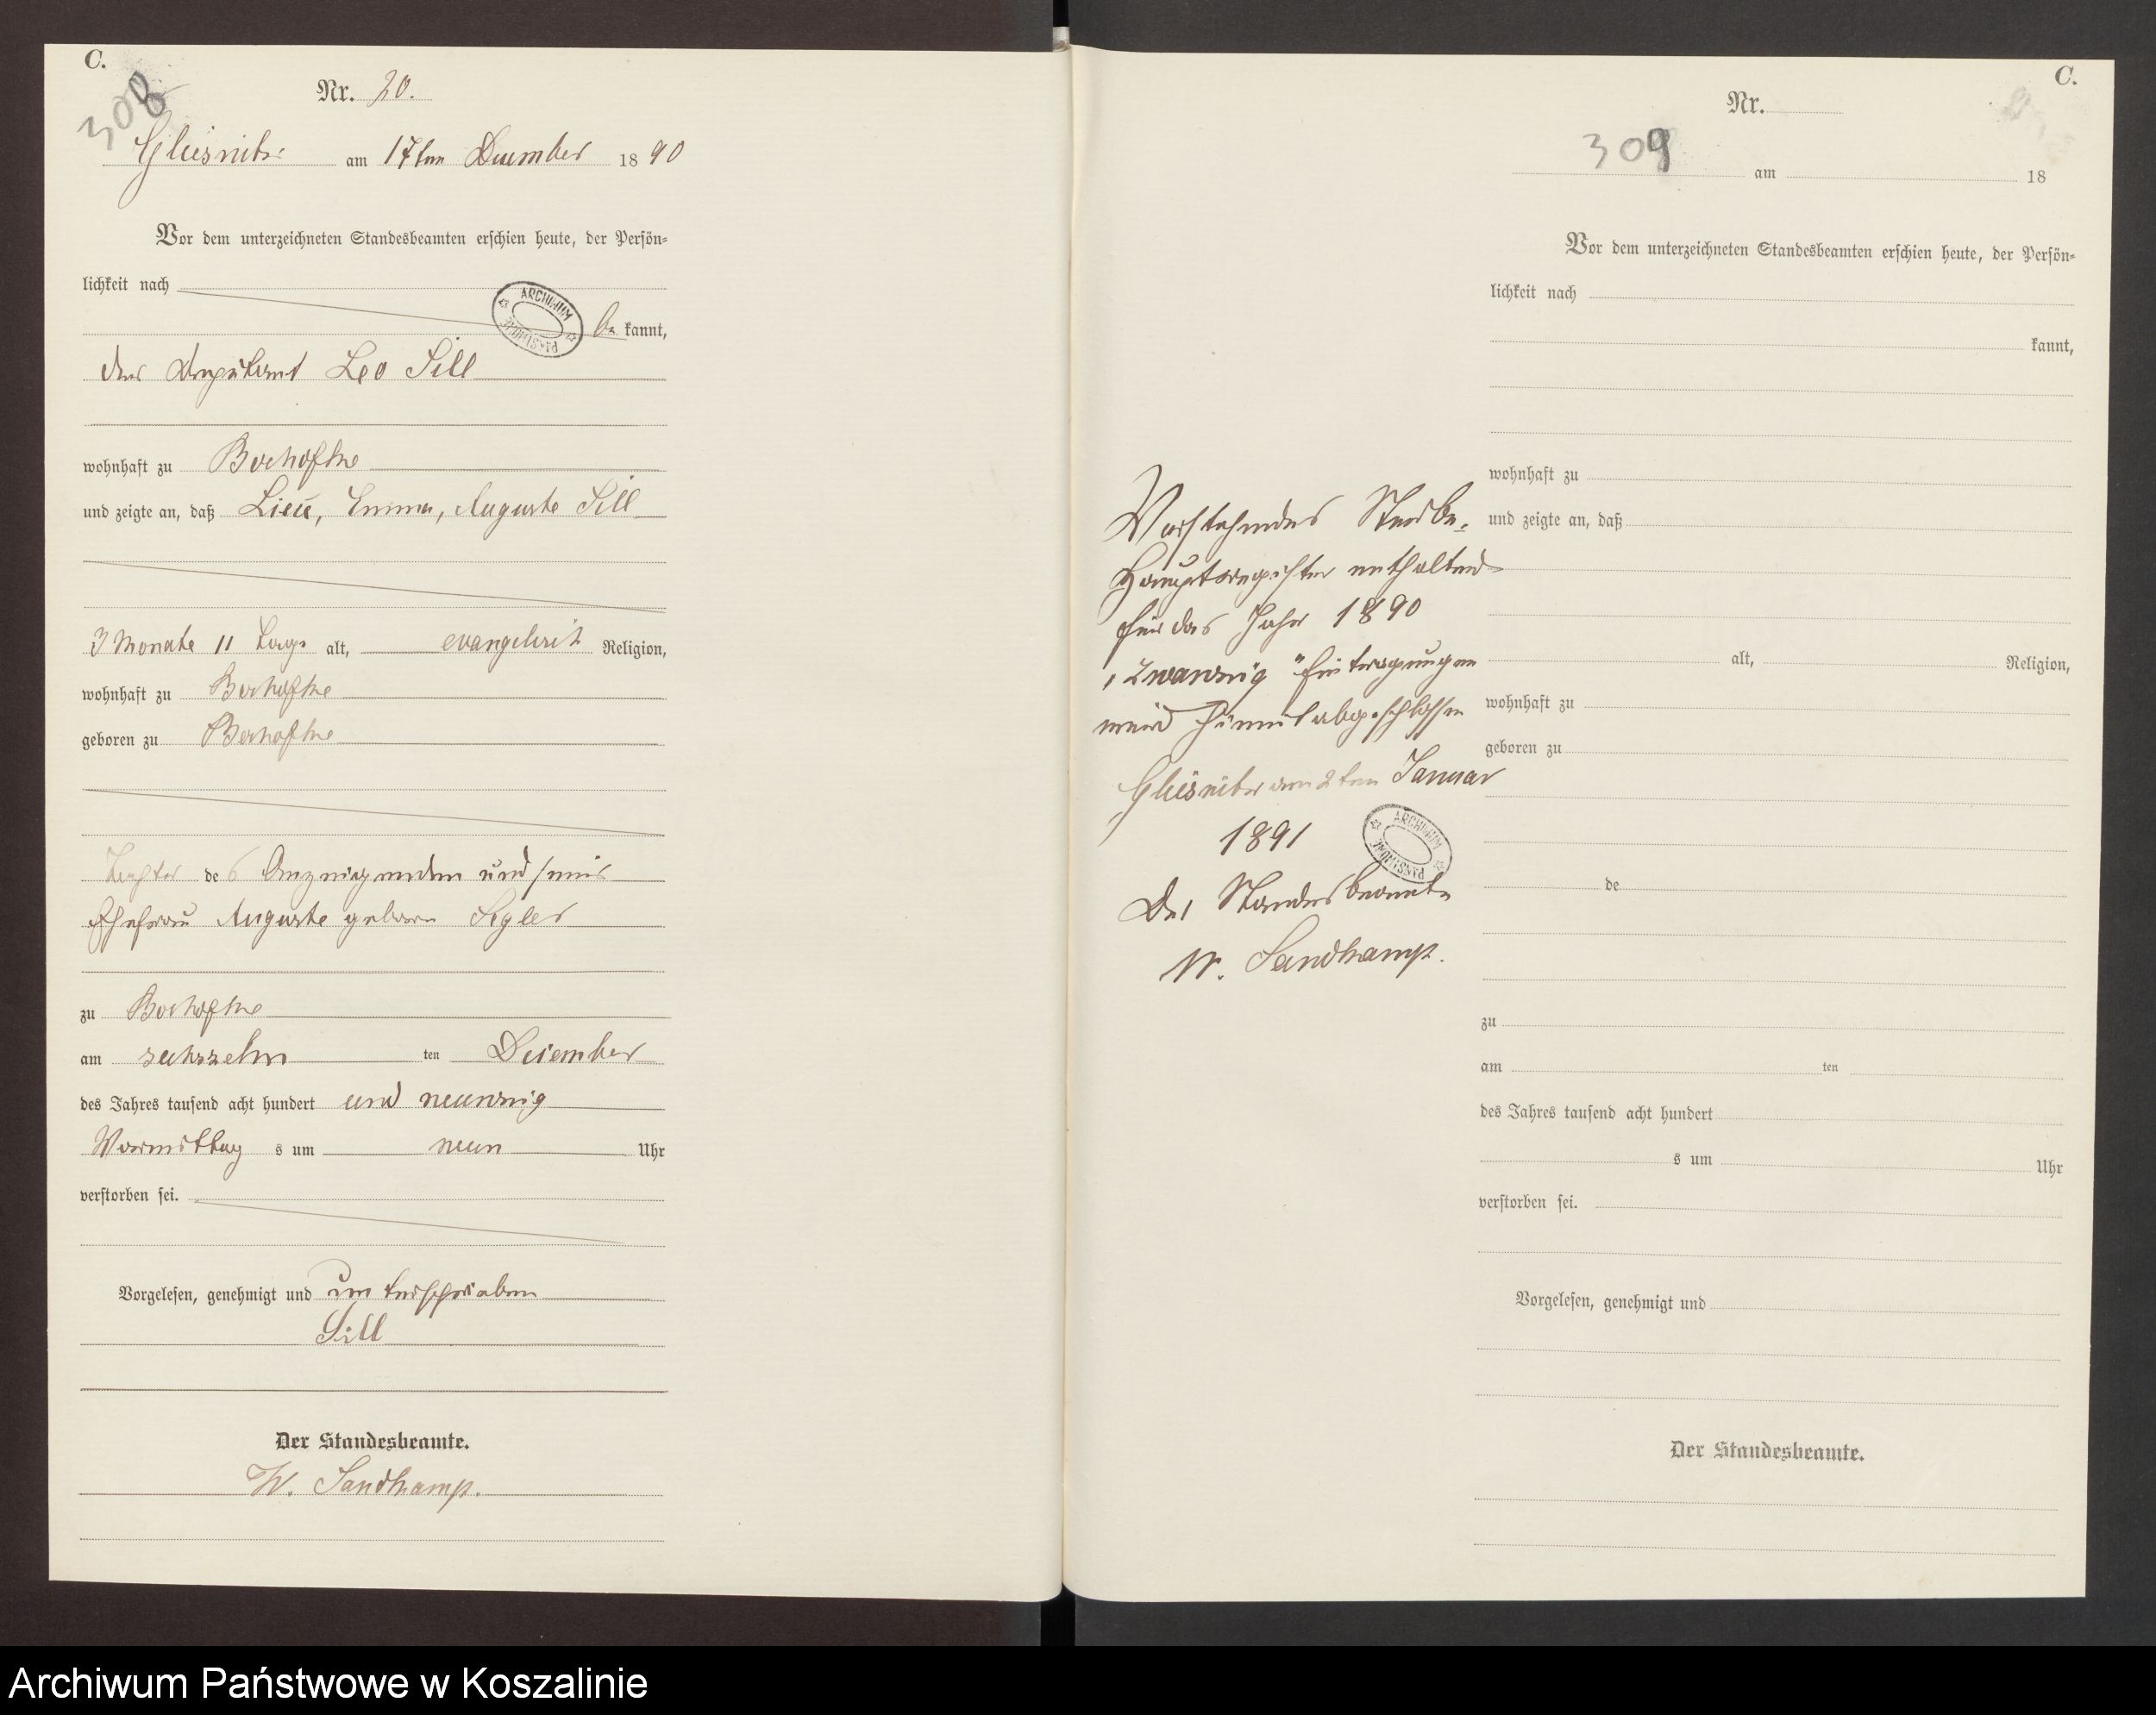 C.
308
Nr. 20.
Gliesnitz am 17ten December 1890
Vor dem unterzeichneten Standesbeamten erschien heute, der Persön-
lichkeit nach
ARCHIWUM PAŃSTWOWE
be kannt,
der Deputant Leo Sill
wohnhaft zu
und zeigte an, daß Emma, Auguste Sill
3 Monate 11 Tage alt, evangelisch Religion,
wohnhaft zu
geboren zu
Tochter des Anzeigenden und seiner
Ehefrau Auguste geborene Segler
zu
am sechszehn ten December
des Jahres tausend acht hundert und neunzig
Vormittags um neun Uhr
verstorben sei.
Vorgelesen, genehmigt und unterschrieben
Sill
Der Standesbeamte.
W. Sandkamp.
C.
Nr.
309
am 18
Vor dem unterzeichneten Standesbeamten erschien heute, der Persön-
lichkeit nach
kannt,
wohnhaft zu
und zeigte an, daß
alt, Religion,
wohnhaft zu
geboren zu
de
zu
am ten
des Jahres tausend acht hundert
s um Uhr
verstorben sei.
Vorgelesen, genehmigt und
Der Standesbeamte.
Vorstehendes Sterbe-
Hauptregister enthaltend
für das Jahr 1890
"Zwanzig" Eintragungen
wird hiermit abgeschlossen
Gliesnitz am 2ten Januar
1891
ARCHIWUM PAŃSTWOWE
Der Standesbeamte
W. Sandkamp.
Archiwum Państwowe w Koszalinie